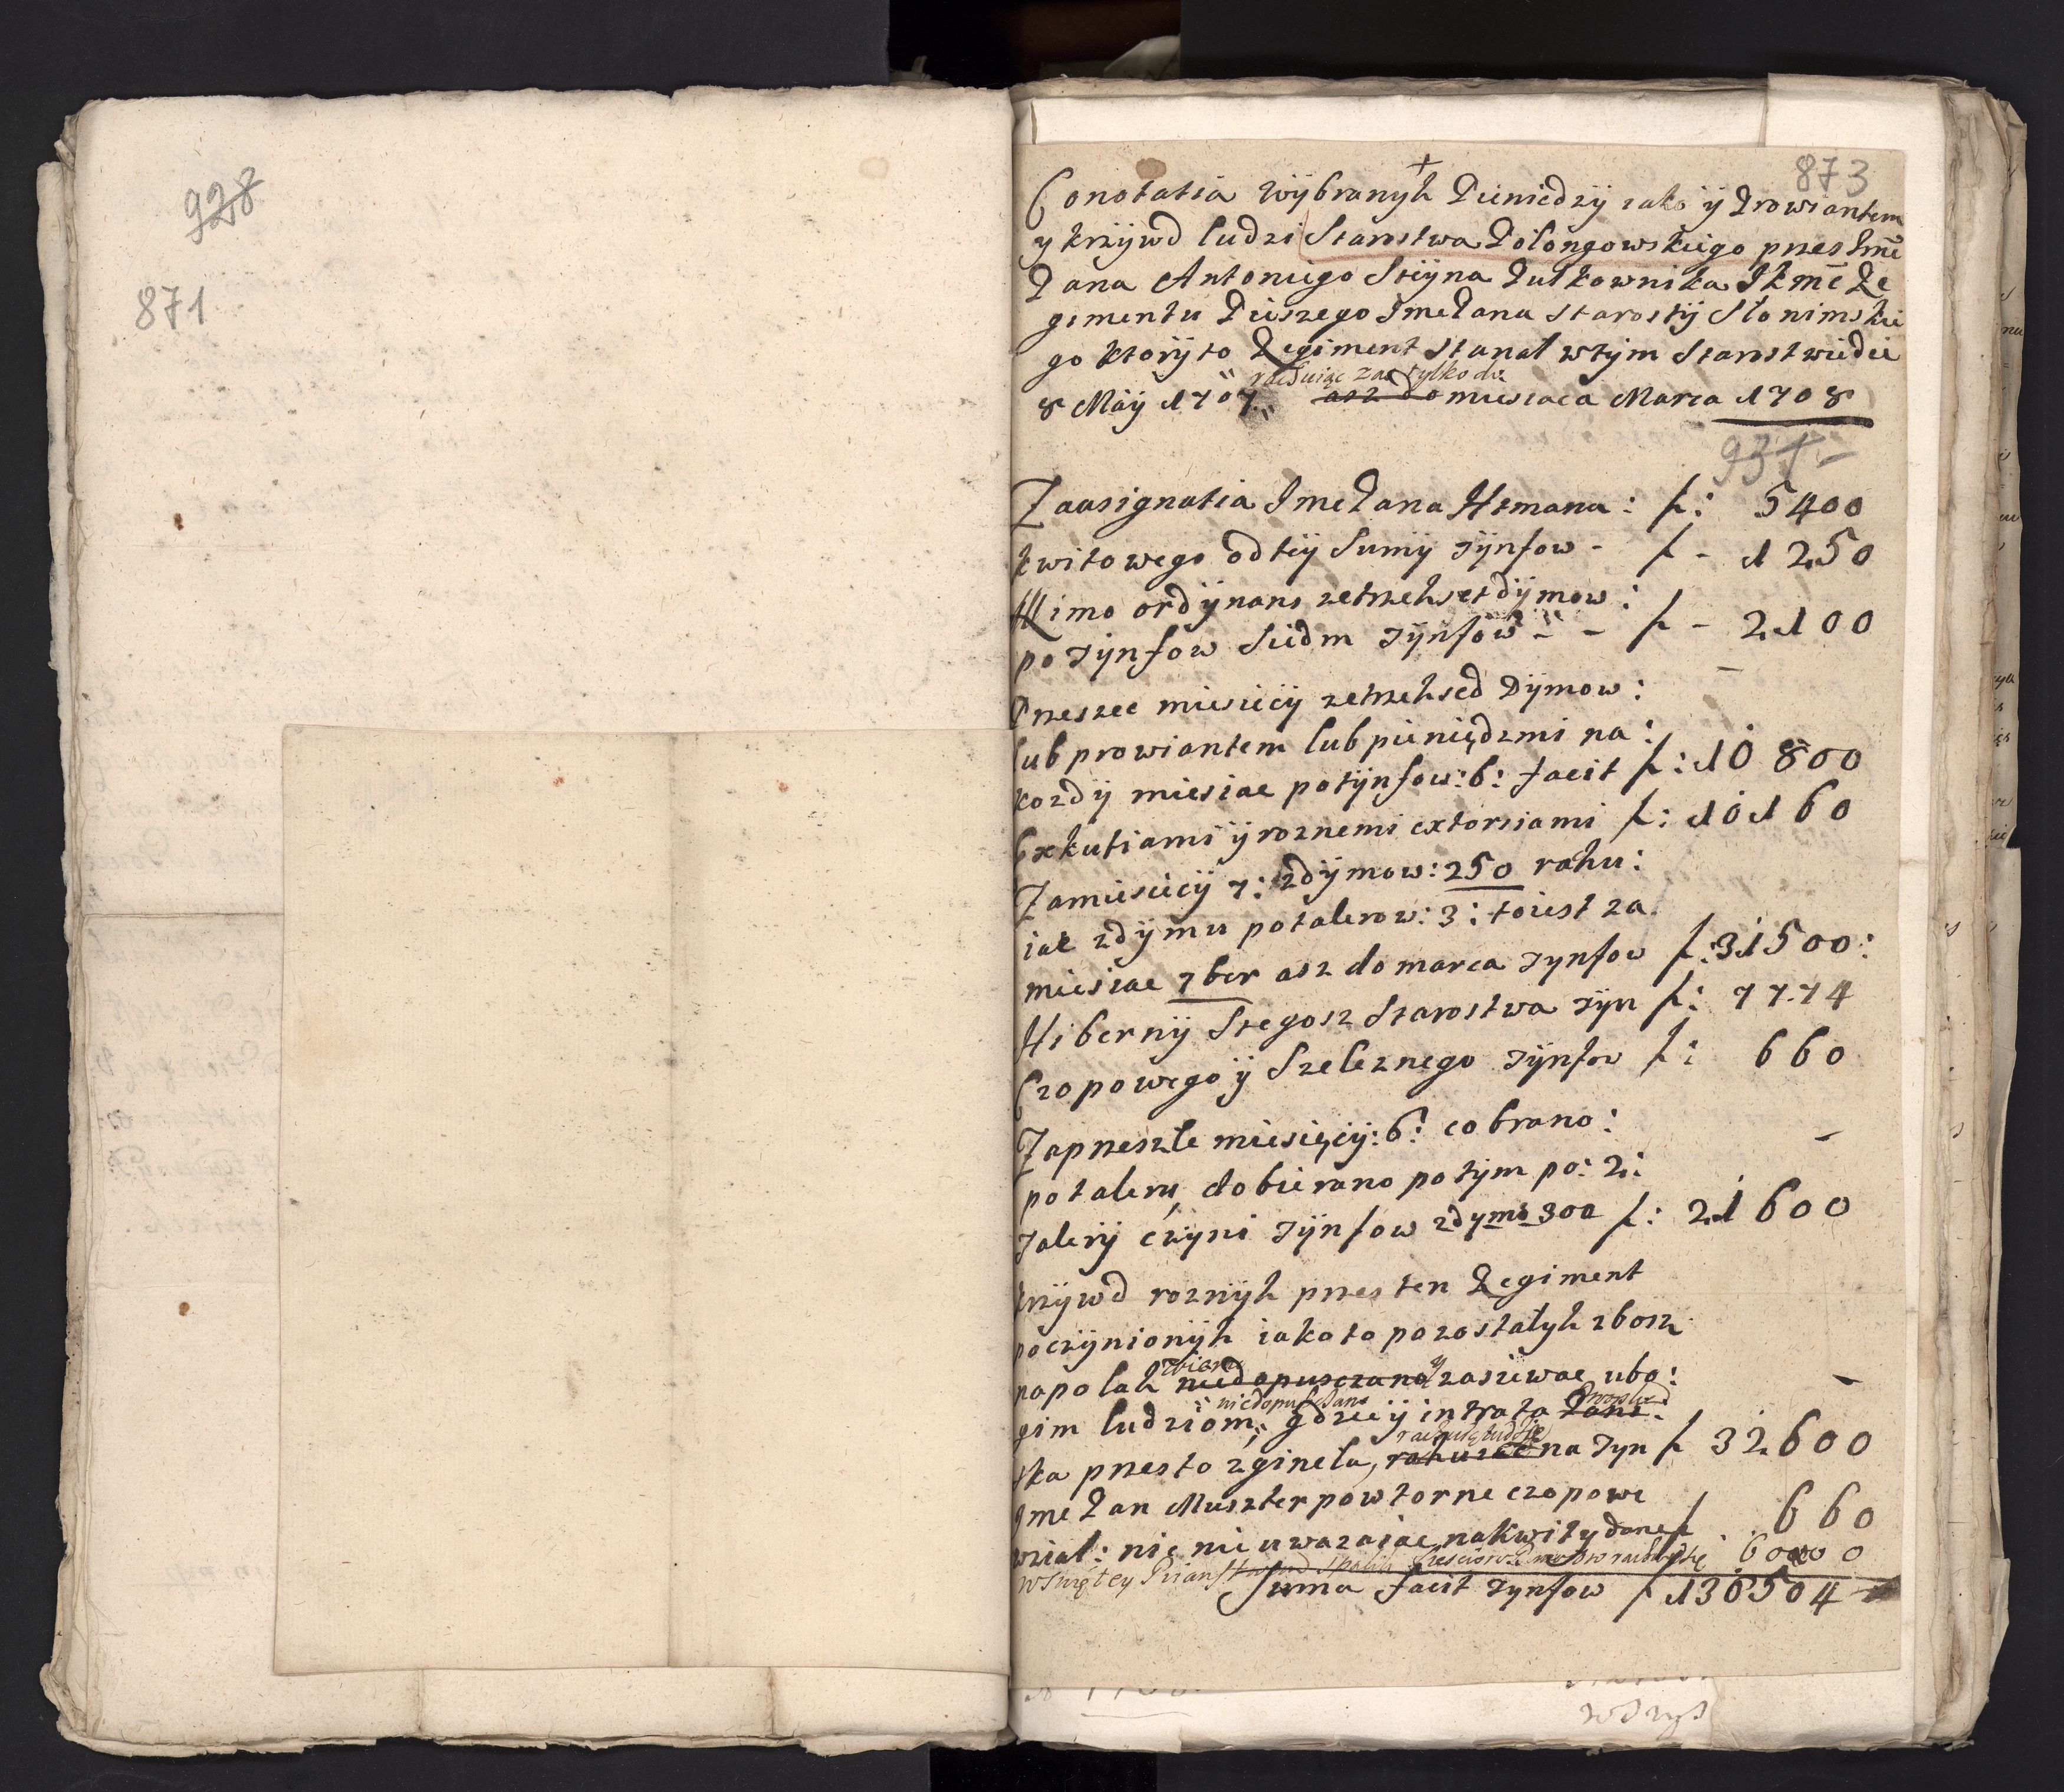 928
871
873
Conotatia wÿbranÿh Pieniedzÿ iako ÿ Prowiantem
y krzÿwd ludzi Starostwa Polongowskiego przes Jme
Pana Antoniego Steÿna Pułkownika JKme Re
gimentu Pieszego Jme Pana Starostÿ Słonimskie
go ktorÿ to Regiment stanał w tÿm Starostwie die
rachuiąc zas tylko do
8 Maÿ 1707 asz do miesiaca Marca 1708
931
Za asignatia Jme Pana Htmana : f: 5400
kwitowego od teÿ Sumÿ Tÿnfow - f - 1250
Mimo ordÿnans ze trzehset dÿmow :
po Tÿnfow siedm Tÿnfow - - f - 2100
Przes zec miesiecÿ ze trzehsed Dÿmow :
lub prowiantem lub pieniędzmi na :
kozdÿ miesiac po tÿnfow : 6 : facit f : 10800
Exkutiami ÿ roznemi extorsiami f : 10160
Za miesiecÿ 7 : z dÿmow : 250 rahu :
iac z dÿmu po talerow : 3 : to iest za
miesiac 7ber asz do marca Tynfow f : 31500 :
Hibernÿ S tegosz Starostwa Tÿn f : 7774
Czopowego ÿ Szeleznego Tÿnfow f : 660
Za przeszłe miesięcÿ : 6 : co brano :
po taleru, dobierano potÿm po : 2 :
Talerÿ czyni Tÿnfow z dymo 300 f : 21600
krzÿwd roznÿh przes ten Regiment
poczÿnionÿh iako to pozostałyh zbosz
zbierac y
na polah niedopusczano zasiewac ubo :
niedopusczano
gim ludziom, gdzie ÿ intrata Pans :
ska przes to zgineła, rahuiac na Tyn f 32600
Jme Pan Muszter powtorne czopowe
wział : nic nie uwazaiac na kwity dane f 660
60000
Suma facit Tynfow f 130504